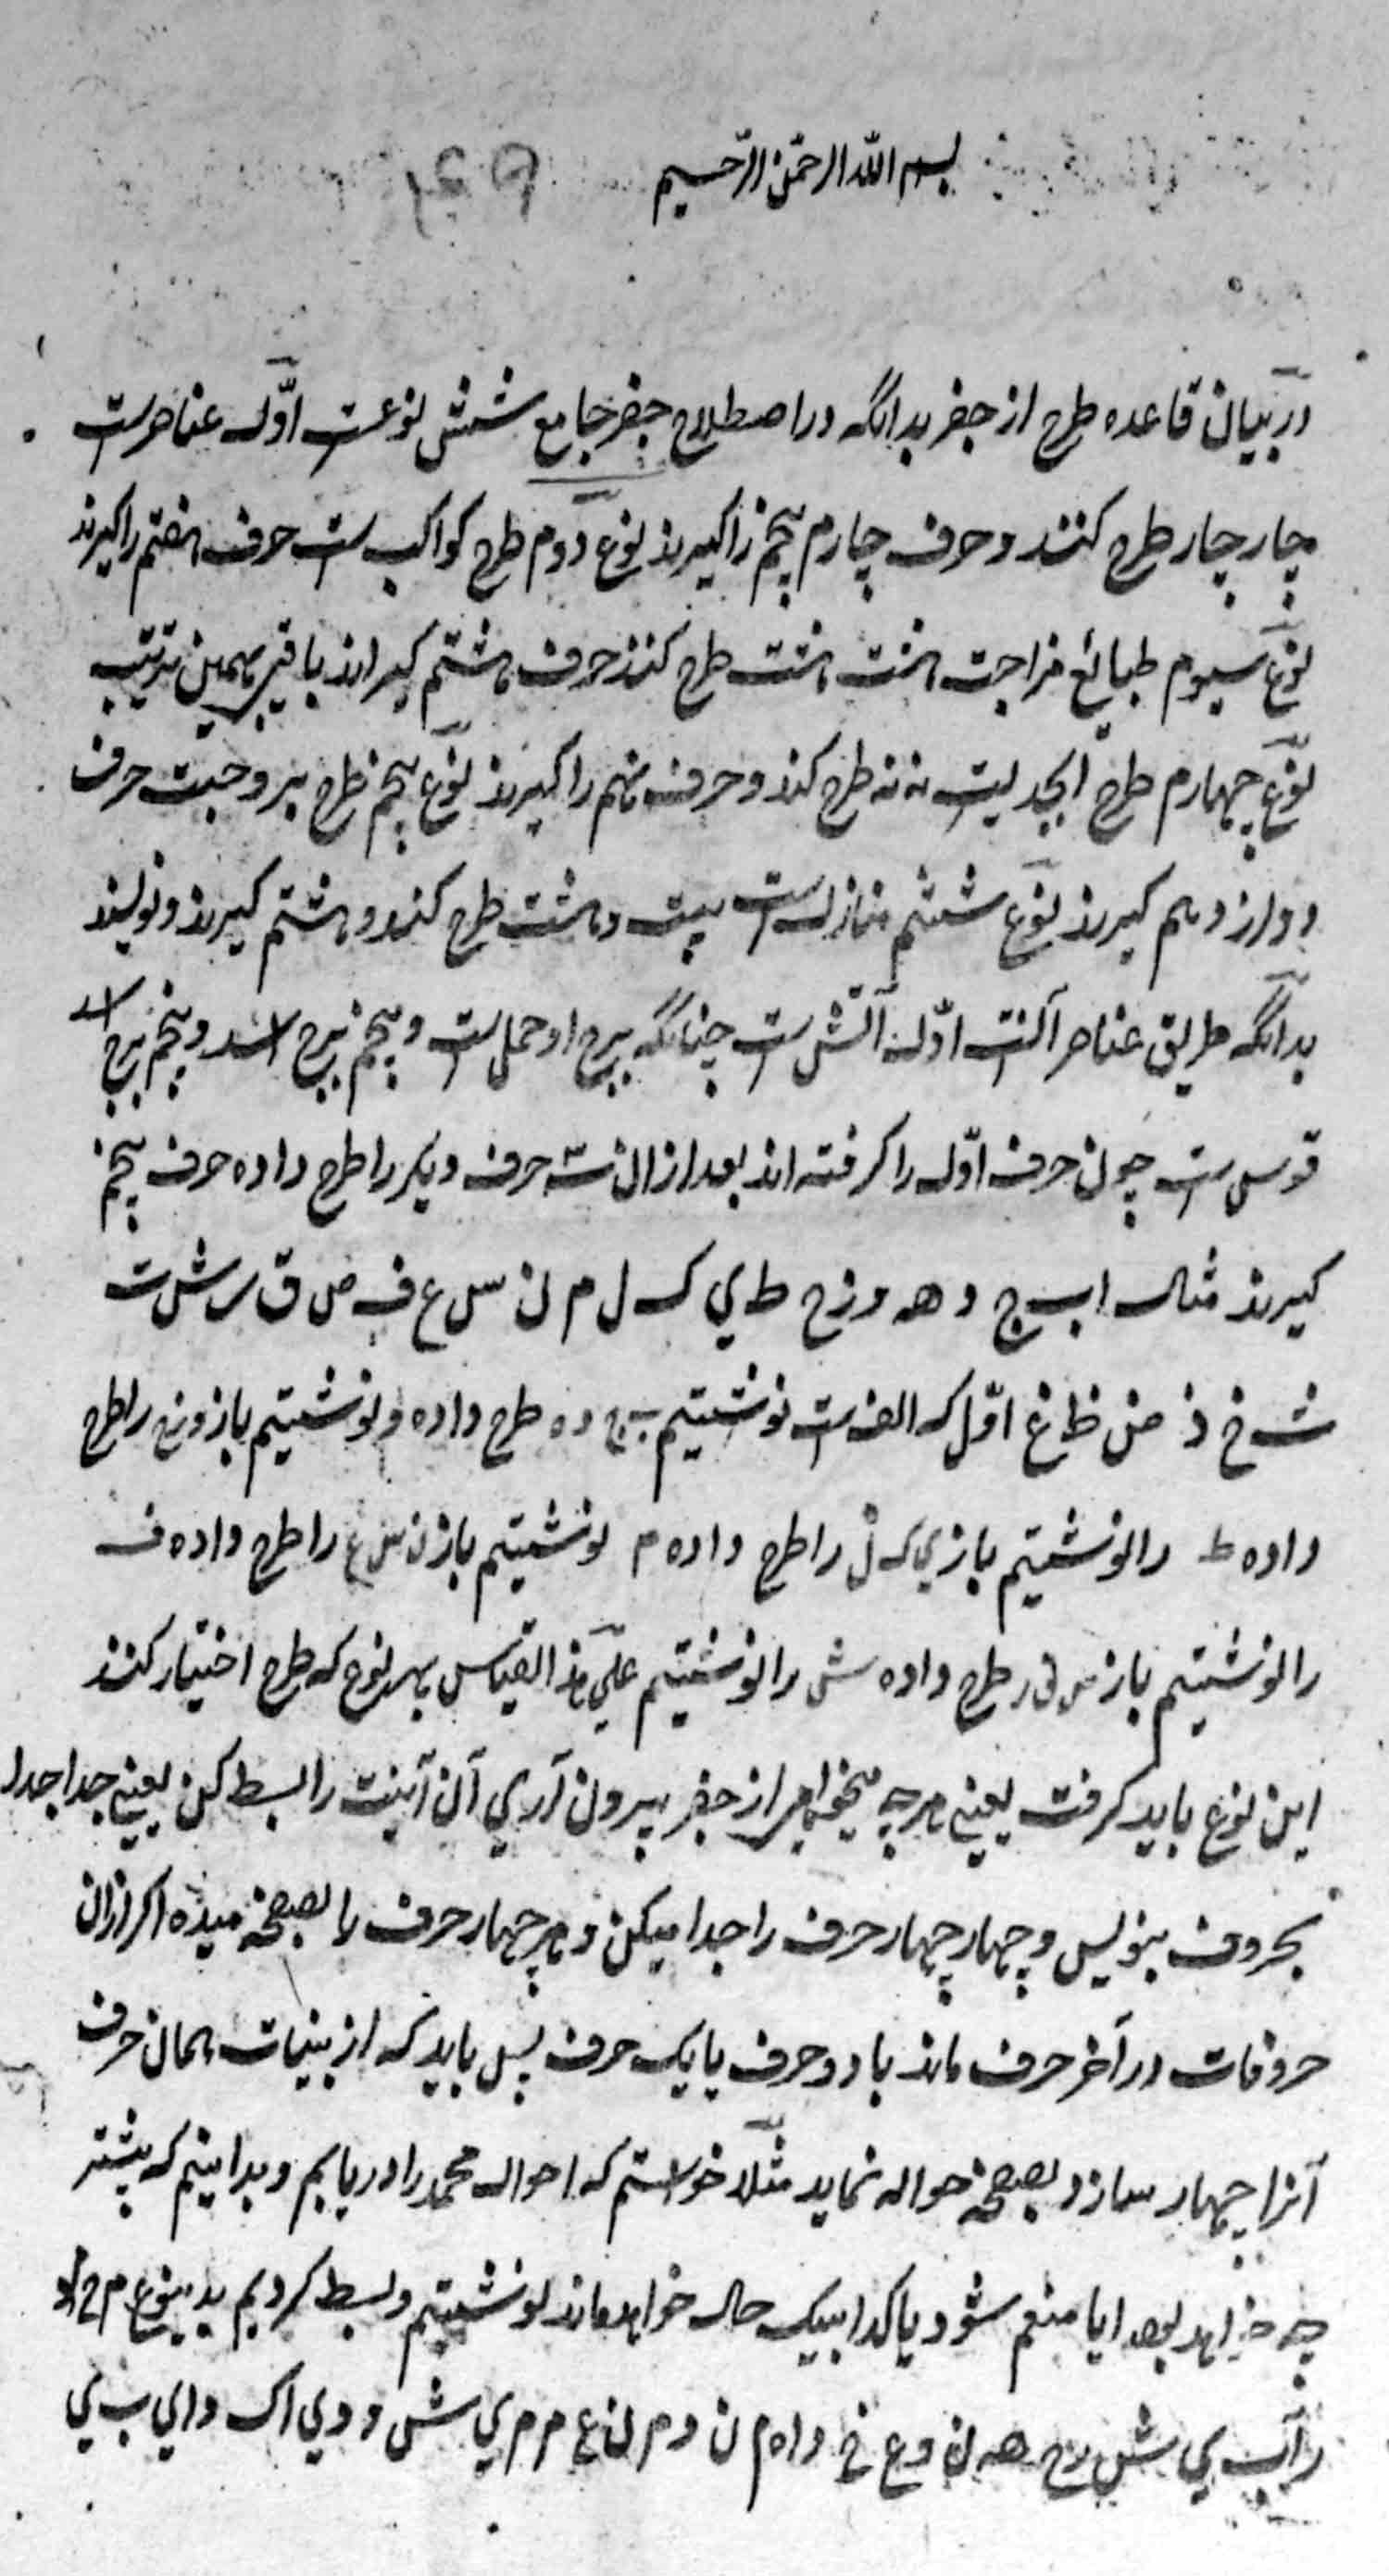 بسم الله الرحمن الرحیم
در بیان قاعده طرح از جفر بدانکه در اصطلاح جفر جامع شش نوعست اول عناصرست
چار چار طرح کنند و حرف چارم پنجم را کیرند نوع دوم طرح کواکب ست حرف هفتم را کیرند
نوع سیوم طبائع مزاجت هشت هشت طرح کنند حرف هشتم کیرند باقی بهمین ترتیب
نوع چهارم طرح ابجدیست نه نه طرح کند و حرف نهم را کیرند نوع پنجم طرح بروجیت حرف
دوازدهم کیرند نوع ششم منازلست بیست و هشت طرح کنند و هشتم کیرند و نویسند
بدانکه طریق عناصر آنست اول آتش ست چنانکه برج او حمل ست و پنجم برج اسد و پنجم برج اسد
قوس ست چون حرف اول را کرفته اند بعد ازان سه حرف دیکر را طرح داده حرف پنجم
کیرند مثال ا ب ج د هـ و ز ح ط ي ک ل م ن س ع ف ص ق ر ش ت
ث خ ذ ض ظ غ اول که الف ست نوشتیم ب ج د ه طرح داده و نوشتیم باز و ز ح را طرح
داده ط را نوشتیم باز ي ک ل را طرح داده م نوشتیم باز ن س ع را طرح داده ف
را نوشتیم باز ص ق ر طرح داده ش را نوشتیم علی هذا القیاس بهر نوع که طرح اختیار کنند
این نوع باید کرفت یعنی هرچه میخواهی از جفر بیرون آري آن آنیت را بسط کن یعنی جدا جدا
بحروف بنویس و چهار چهار حرف را جدا میکن و هر چهار حرف را بصفحه میده اکر ازان
حروفات در آخر حرف ماند یا دو حرف یا یک حرف پس باید که از بینات همان حرف
آنرا چهار سازد و بصفحه حواله نماید مثلا خواستم که احوال محمد را دریابم و بدانیم که پیشتر
چه خواهد بود ایا منعم شود یا کدا بیک حال خواهد ماند نوشتیم و بسط کردیم بدینوع م ح م د
ر ا ب ي ش ر ج هـ ن و ع خ و ا ه م ن د م ن ع م م ي ش و د ي ا ک د ا ي ب ي